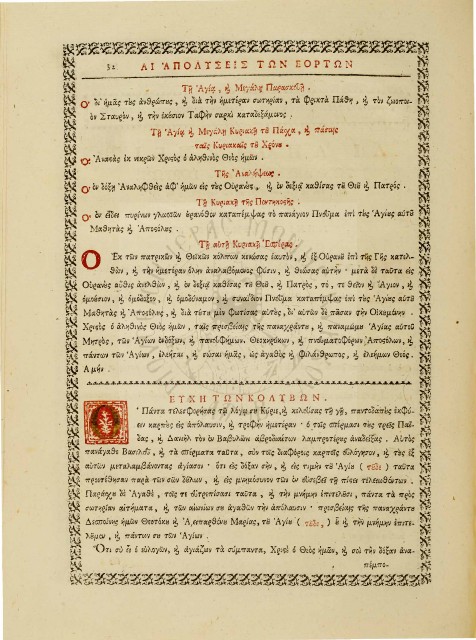 32 ΑΙ ἈΠΟΛΥΣΕΙΣ ΤΩΝ ΕΟΡΤΩΝ
Τῇ Ἁγίᾳ, ϗ Μεγάλῃ Παρασκευῇ.
Ὁ δι' ἡμᾶς τοὺς ἀνθρώπους, ϗ διὰ τὴν ἡμετέραν σωτηρίαν, τὰ Φρικτὰ Πάθη, ϗ τὸν ζωοποι-
ὸν Σταυρὸν, ϗ τὴν ἑκούσιον Ταφὴν σαρκὶ καταδεξάμενος.
Τῇ Ἁγίᾳ ϗ Μεγάλῃ Κυριακῇ τοῦ Πάσχα, ϗ πάσαις
ταῖς Κυριακαῖς τοῦ Χρόνου.
Ὁ Ἀναστὰς ἐκ νεκρῶν Χριστὸς ὁ ἀληθινὸς Θεὸς ἡμῶν.
Τῆς Ἀναλήψεως.
Ὁ ἐν δόξῃ Ἀναληφθεὶς ἀφ' ἡμῶν εἰς τοὺς Οὐρανοὺς, ϗ ἐν δεξιᾷ καθίσας τοῦ Θεοῦ ϗ Πατρός.
Τῇ Κυριακῇ τῆς Πεντηκοστῆς.
Ὁ ἐν εἴδει πυρίνων γλωσσῶν οὐρανόθεν καταπέμψας τὸ πανάγιον Πνεῦμα ἐπὶ τοὺς Ἁγίους αὐτοῦ
Μαθητὰς ϗ Ἀποστόλους.
Τῇ αὐτῇ Κυριακῇ Ἑσπέρας.
Ὁ Ἐκ τῶν πατρικῶν ϗ Θεικῶν κόλπων κενώσας ἑαυτὸν, ϗ ἐξ Οὐρανοῦ ἐπὶ τῆς Γῆς κατελ-
θὼν, ϗ τὴν ἡμετέραν ὅλην ἀναλαβόμενος φύσιν, ϗ Θεώσας αὐτὴν· μετὰ δὲ ταῦτα εἰς
Οὐρανοὺς αὖθις ἀνελθὼν, ϗ ἐν δεξιᾷ καθίσας τοῦ Θεοῦ, ϗ Πατρὸς, τό, τε Θεῖον ϗ Ἅγιον, ϗ
ὁμοούσιον, ϗ ὁμόδοξον, ϗ ὁμοδύναμον, ϗ συναΐδιον Πνεῦμα καταπέμψας ἐπὶ τοὺς Ἁγίους αὐτοῦ
Μαθητὰς ϗ Ἀποστόλους, ϗ διὰ τούτου μὲν Φωτίσας αὐτοὺς, δι' αὐτῶν δὲ πᾶσαν τὴν Οἰκουμένην
Χριστὸς ὁ ἀληθινὸς Θεὸς ἡμῶν, ταῖς πρεσβείαις τῆς παναχράντου, ϗ παναμώμου Ἁγίας αὐτοῦ
Μητρὸς, τῶν Ἁγίων ἐνδόξων, ϗ πανευφήμων, Θεοκηρύκων, ϗ πνευματοφόρων Ἀποστόλων, ϗ
πάντων τῶν Ἁγίων, ἐλεήσαι, ϗ σώσαι ἡμᾶς, ὡς ἀγαθὸς ϗ Φιλάνθρωπος, ϗ ἐλεήμων Θεός.
Ἀμήν.
ΕΥΧΗ ΤΩΝ ΚΟΛΥΒΩΝ.
Ὁ Πάντα τελεσφορήσας τῷ λόγῳ σου Κύριε, ϗ κελεύσας τῇ γῇ, παντοδαποὺς ἐκφύ-
ειν καρποὺς εἰς ἀπόλαυσιν, ϗ τροφὴν ἡμετέραν· ὁ τοῖς σπέρμασι τοὺς τρεῖς Παῖ-
δας, ϗ Δανιὴλ τὸν ἐν Βαβυλῶνι ἁβροδιαίτων λαμπροτέρους ἀναδείξας. Αὐτὸς
πανάγαθε Βασιλεῦ, ϗ τὰ σπέρματα ταῦτα, σὺν τοῖς διαφόροις καρποῖς εὐλόγησον, ϗ τοὺς ἐξ
αὐτῶν μεταλαμβάνοντας ἁγίασον· ὅτι εἰς δόξαν σὴν, ϗ εἰς τιμὴν τοῦ Ἁγίου (τοῦδε) ταῦτα
προετέθησαν παρὰ τῶν σῶν δούλων, ϗ εἰς μνημόσυνον τῶν ἐν εὐσεβεῖ τῇ πίστει τελειωθέντων.
Παράσχου δὲ Ἀγαθὲ, τοῖς τε εὐτρεπίσασι ταῦτα, ϗ τὴν μνήμην ἐπιτελοῦσι, πάντα τὰ πρὸς
σωτηρίαν αἰτήματα, ϗ τῶν αἰωνίων σου ἀγαθῶν τὴν ἀπόλαυσιν· πρεσβείαις τῆς παναχράντου
Δεσποίνης ἡμῶν Θεοτόκου ϗ Ἀειπαρθένου Μαρίας, τοῦ Ἁγίου (τοῦδε,) οὗ ϗ τὴν μνήμην ἐπιτε-
λοῦμεν, ϗ πάντων σου τῶν Ἁγίων.
Ὅτι σὺ εἶ ὁ εὐλογῶν, ϗ ἁγιάζων τὰ σύμπαντα, Χριστὲ ὁ Θεὸς ἡμῶν, ϗ σοὶ τὴν δόξαν ἀνα-
πέμπο-